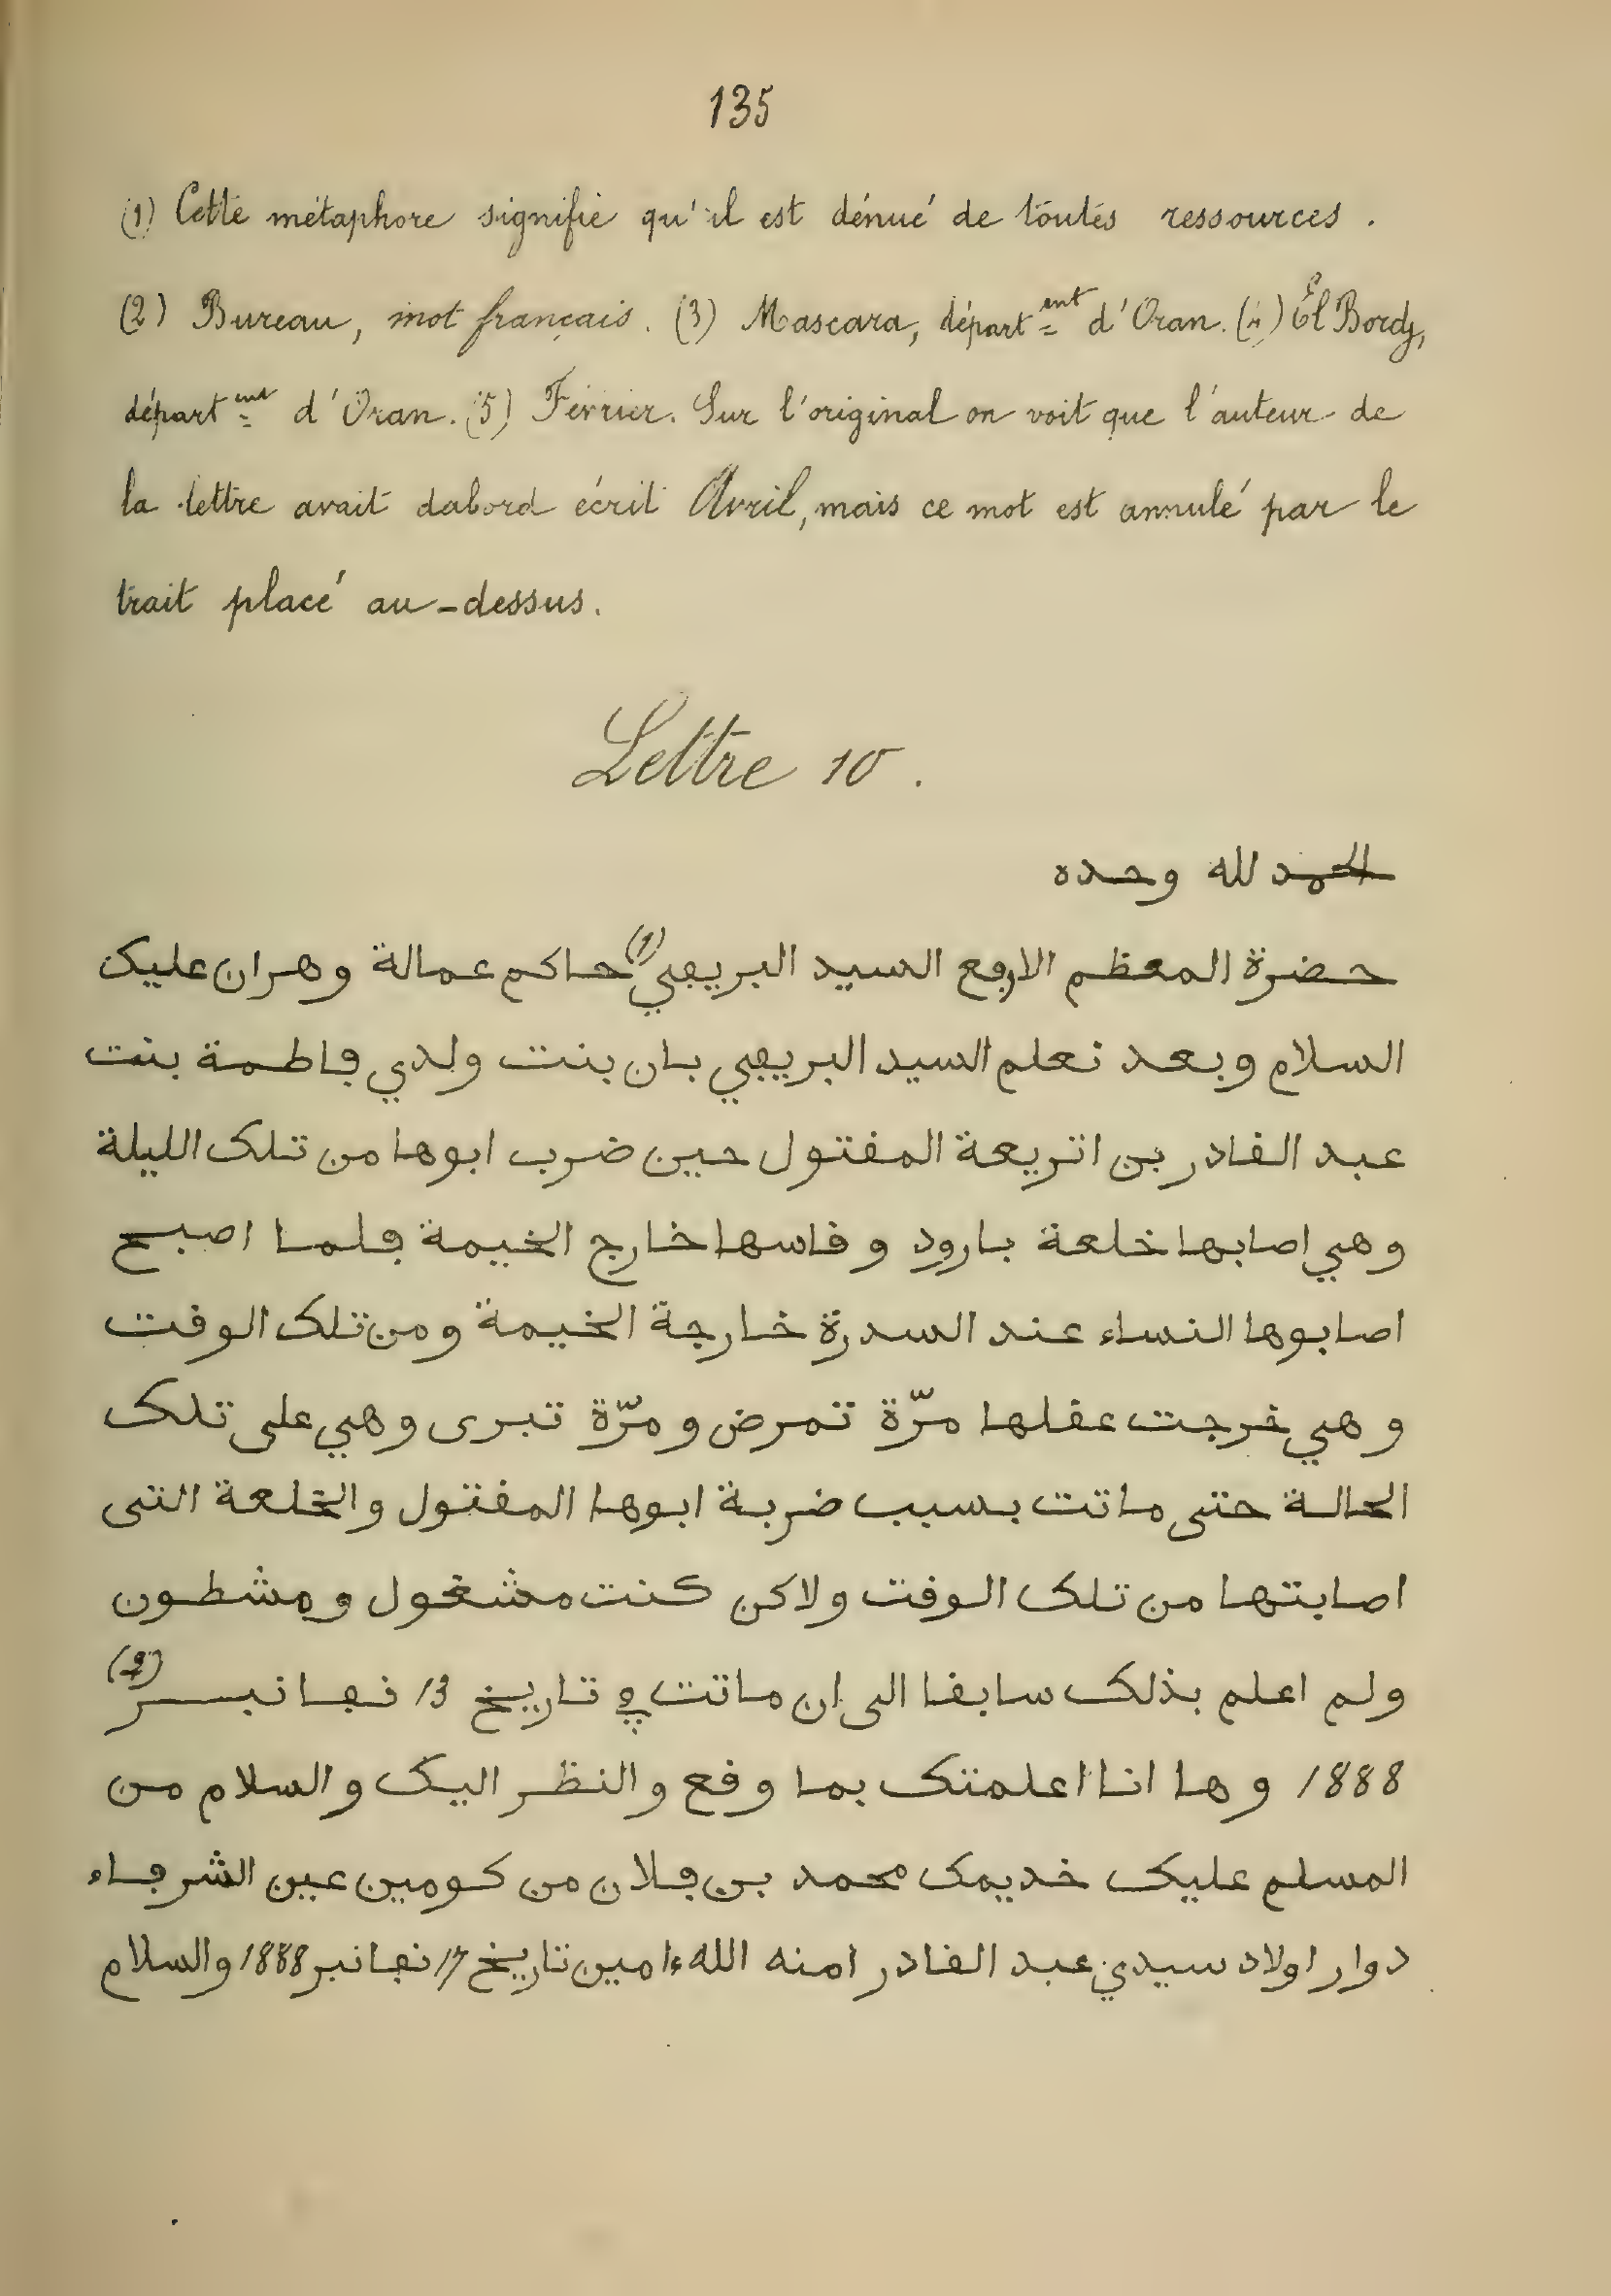 135
(1) Cette métaphore signifie qu'il est dénué de toutes ressources.
(2) Bureau, mot français. (3) Mascara, départent d'Oran. (4) El Bordj,
départent d'Oran. (5) Février. Sur l'original on voit que l'auteur de
la lettre avait dabord écrit Avril, mais ce mot est annulé par le
trait placé au-dessus.
Lettre 10.
الحمد لله وحده
حضرة المعظم الارفع السيد البريفي (1) حاكم عمالة وهران عليك
السلام وبعد نعلم السيد البريفي بان بنت ولدي فاطمة بنت
عبد القادر بن اتريعة المقتول حين ضرب ابوها من تلك الليلة
وهي اصابها خلعة بارود وقاسها خارج الخيمة فلما اصبح
اصابوها النساء عند السدرة خارجة الخيمة ومن تلك الوقت
وهي خرجت عقلها مرّة تمرض ومرّة تبرى وهي على تلك
الحالة حتى ماتت بسبب ضربة ابوها المقتول والخلعة التى
اصابتها من تلك الوقت ولاكن كنت مشغول ومشطون
ولم اعلم بذلك سابقا الى ان ماتت في تاريخ 13 نفانبر (2)
1888 وها انا اعلمتك بما وقع والنظر اليك والسلام من
المسلم عليك خديمك محمد بن فلان من كومين عين الشرفاء
دوار اولاد سيدي عبد القادر امنه الله ءامين تاريخ 17 نفانبر 1888 والسلام